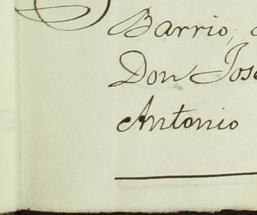 Barrio,
Don José
Antonio